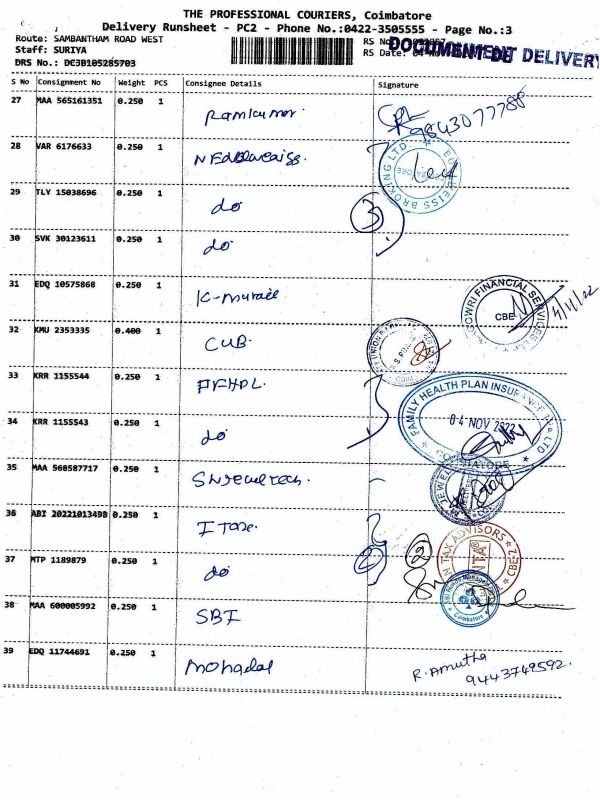 THE PROFESSIONAL COURIERS, Coimbatore
Delivery Runsheet - PC2 - Phone No.:0422-3505555 - Page No.:3
Route: SAMBANTHAM ROAD WEST
Staff: SURIYA
DRS No.: DCJB105285703
RS No
RS Date: 04-Nov
DELIVERY
S No Consignment No Weight PCS Consignee Details Signature
27 MAA 565161351 0.250 1 Ramkumar 9843077788
28 VAR 6176633 0.250 1
EDELWEISS BROKING LTD
29 TLY 15038696 0.250 1 do 3
30 SVK 30123611 0.250 1 do
31 EDQ 10575868 0.250 1 K-Murali
GOWRI FINANCIAL SERVICES
CBE
4/11/22
32 KMU 2353335 0.400 1 CUB.
33 KRR 1155544 0.250 1 PFHPL.
FAMILY HEALTH PLAN INSURANCE TPA LTD
04 NOV 2022
COIMBATORE
34 KRR 1155543 0.250 1 do
35 MAA 568587717 0.250 1
36 ABI 2022101349B 0.250 1
37 MTP 1189879 0.250 1 do 2 2
TAX ADVISORS
CBE-2
38 MAA 600005992 0.250 1 SBI
Coimbatore
39 EDQ 11744691 0.250 1
R. Amutha
9443749592.